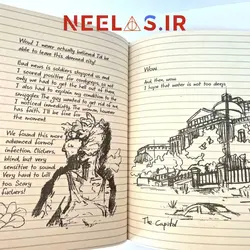 NEELAS.IR
Wow! I never actually believed I'd be
able to leave this damned city!
Bad news is soldiers stopped us and
I scored positive for cordyceps, so no
only we had to get the hell out of here
I also had to explain my condition to
smugglers. The grey wanted to get rid of me
I noticed immediately. The
has faith. I'll be fine
the moment
We found this more
advanced form of
infection. Clickers,
blind, but very
sensitive to sound.
Very hard to kill
too. Scary
fuckers!
Wow
And then, wow.
I hope that water is not too deep.
The Capitol